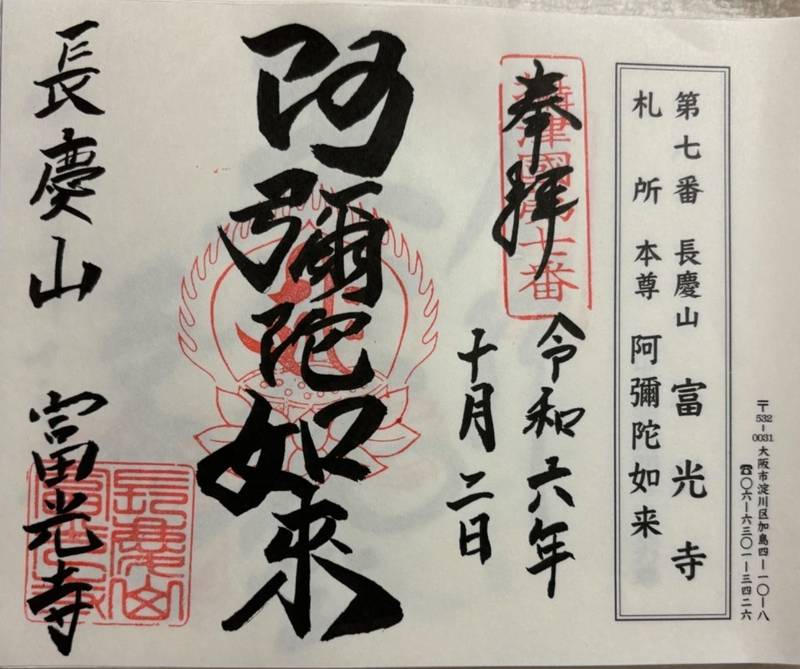 〒532-0031 大阪市淀川区加島四-一〇-八
☎〇六-六三〇一-三四二六
第七番 長慶山 富光寺
札所 本尊 阿彌陀如来
奉拝
攝津國第七番
令和六年
十月二日
阿彌陀如来
長慶山 富光寺